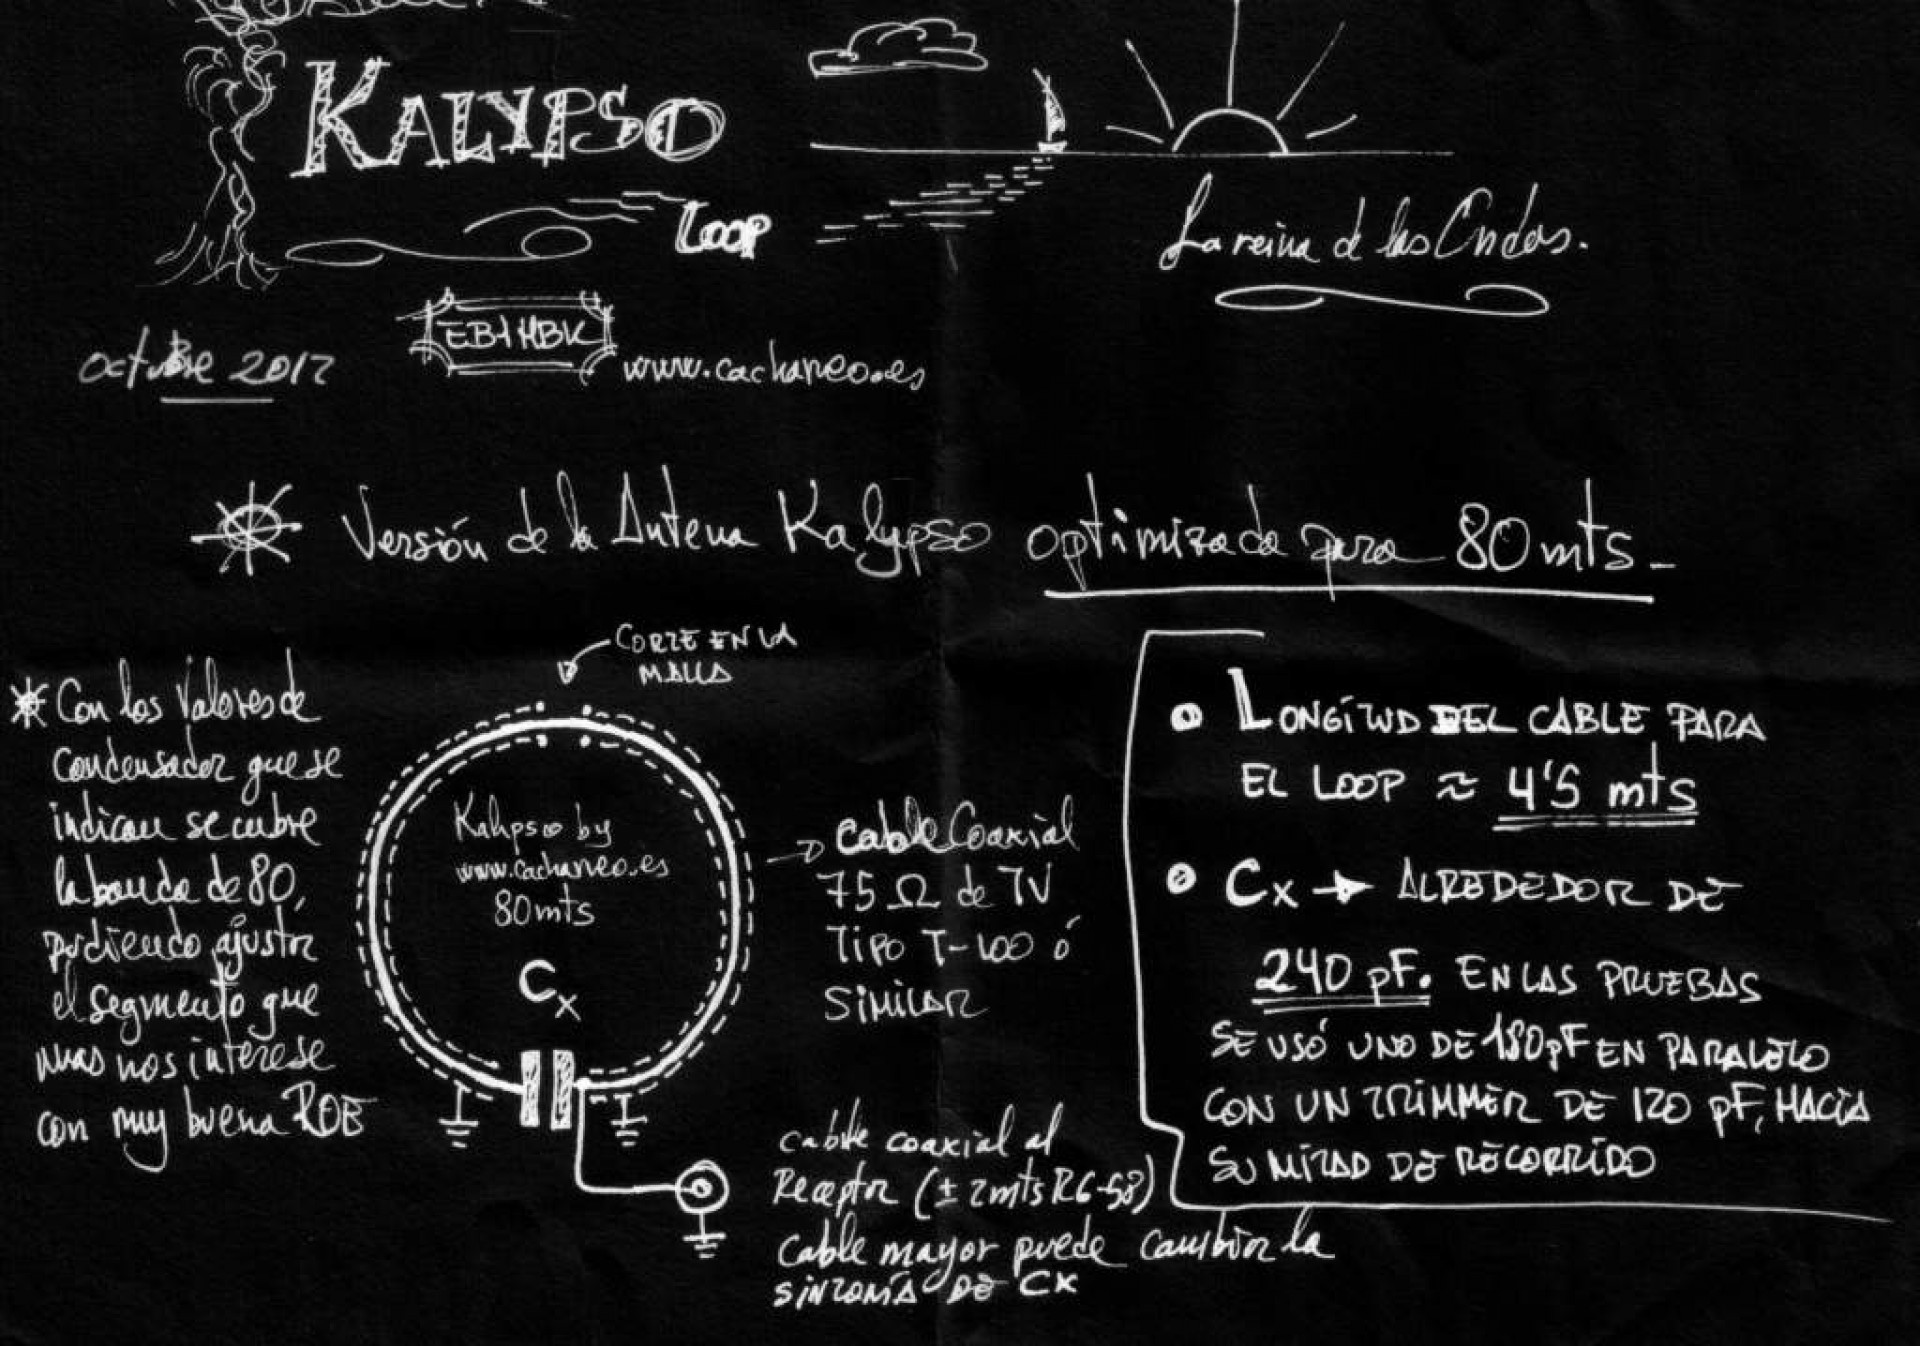 KALYPSO
Loop
La reina de las Ondas.
EB1HBK
octubre 2017
www.cachaneo.es
Versión de la Antena Kalypso optimizada para 80 mts.
CORTE EN LA
MALLA
Con los valores de
condensador que se
indican se cubre
la banda de 80,
pudiendo ajustar
el segmento que
mas nos interese
con muy buena ROE
Kalypso by
www.cachaneo.es
80 mts
Cx
Cable Coaxial
75 Ω de TV
TIPO T-100 ó
SIMILAR
cable coaxial al
Receptor (± 2mts RG-58)
Cable mayor puede cambiar la
SINTONÍA DE CX
LONGITUD DEL CABLE PARA
EL LOOP ≈ 4'5 mts
Cx → ALREDEDOR DE
240 pF. EN LAS PRUEBAS
SE USÓ UNO DE 180pF EN PARALELO
CON UN TRIMMER DE 120 pF, HACIA
SU MITAD DE RECORRIDO